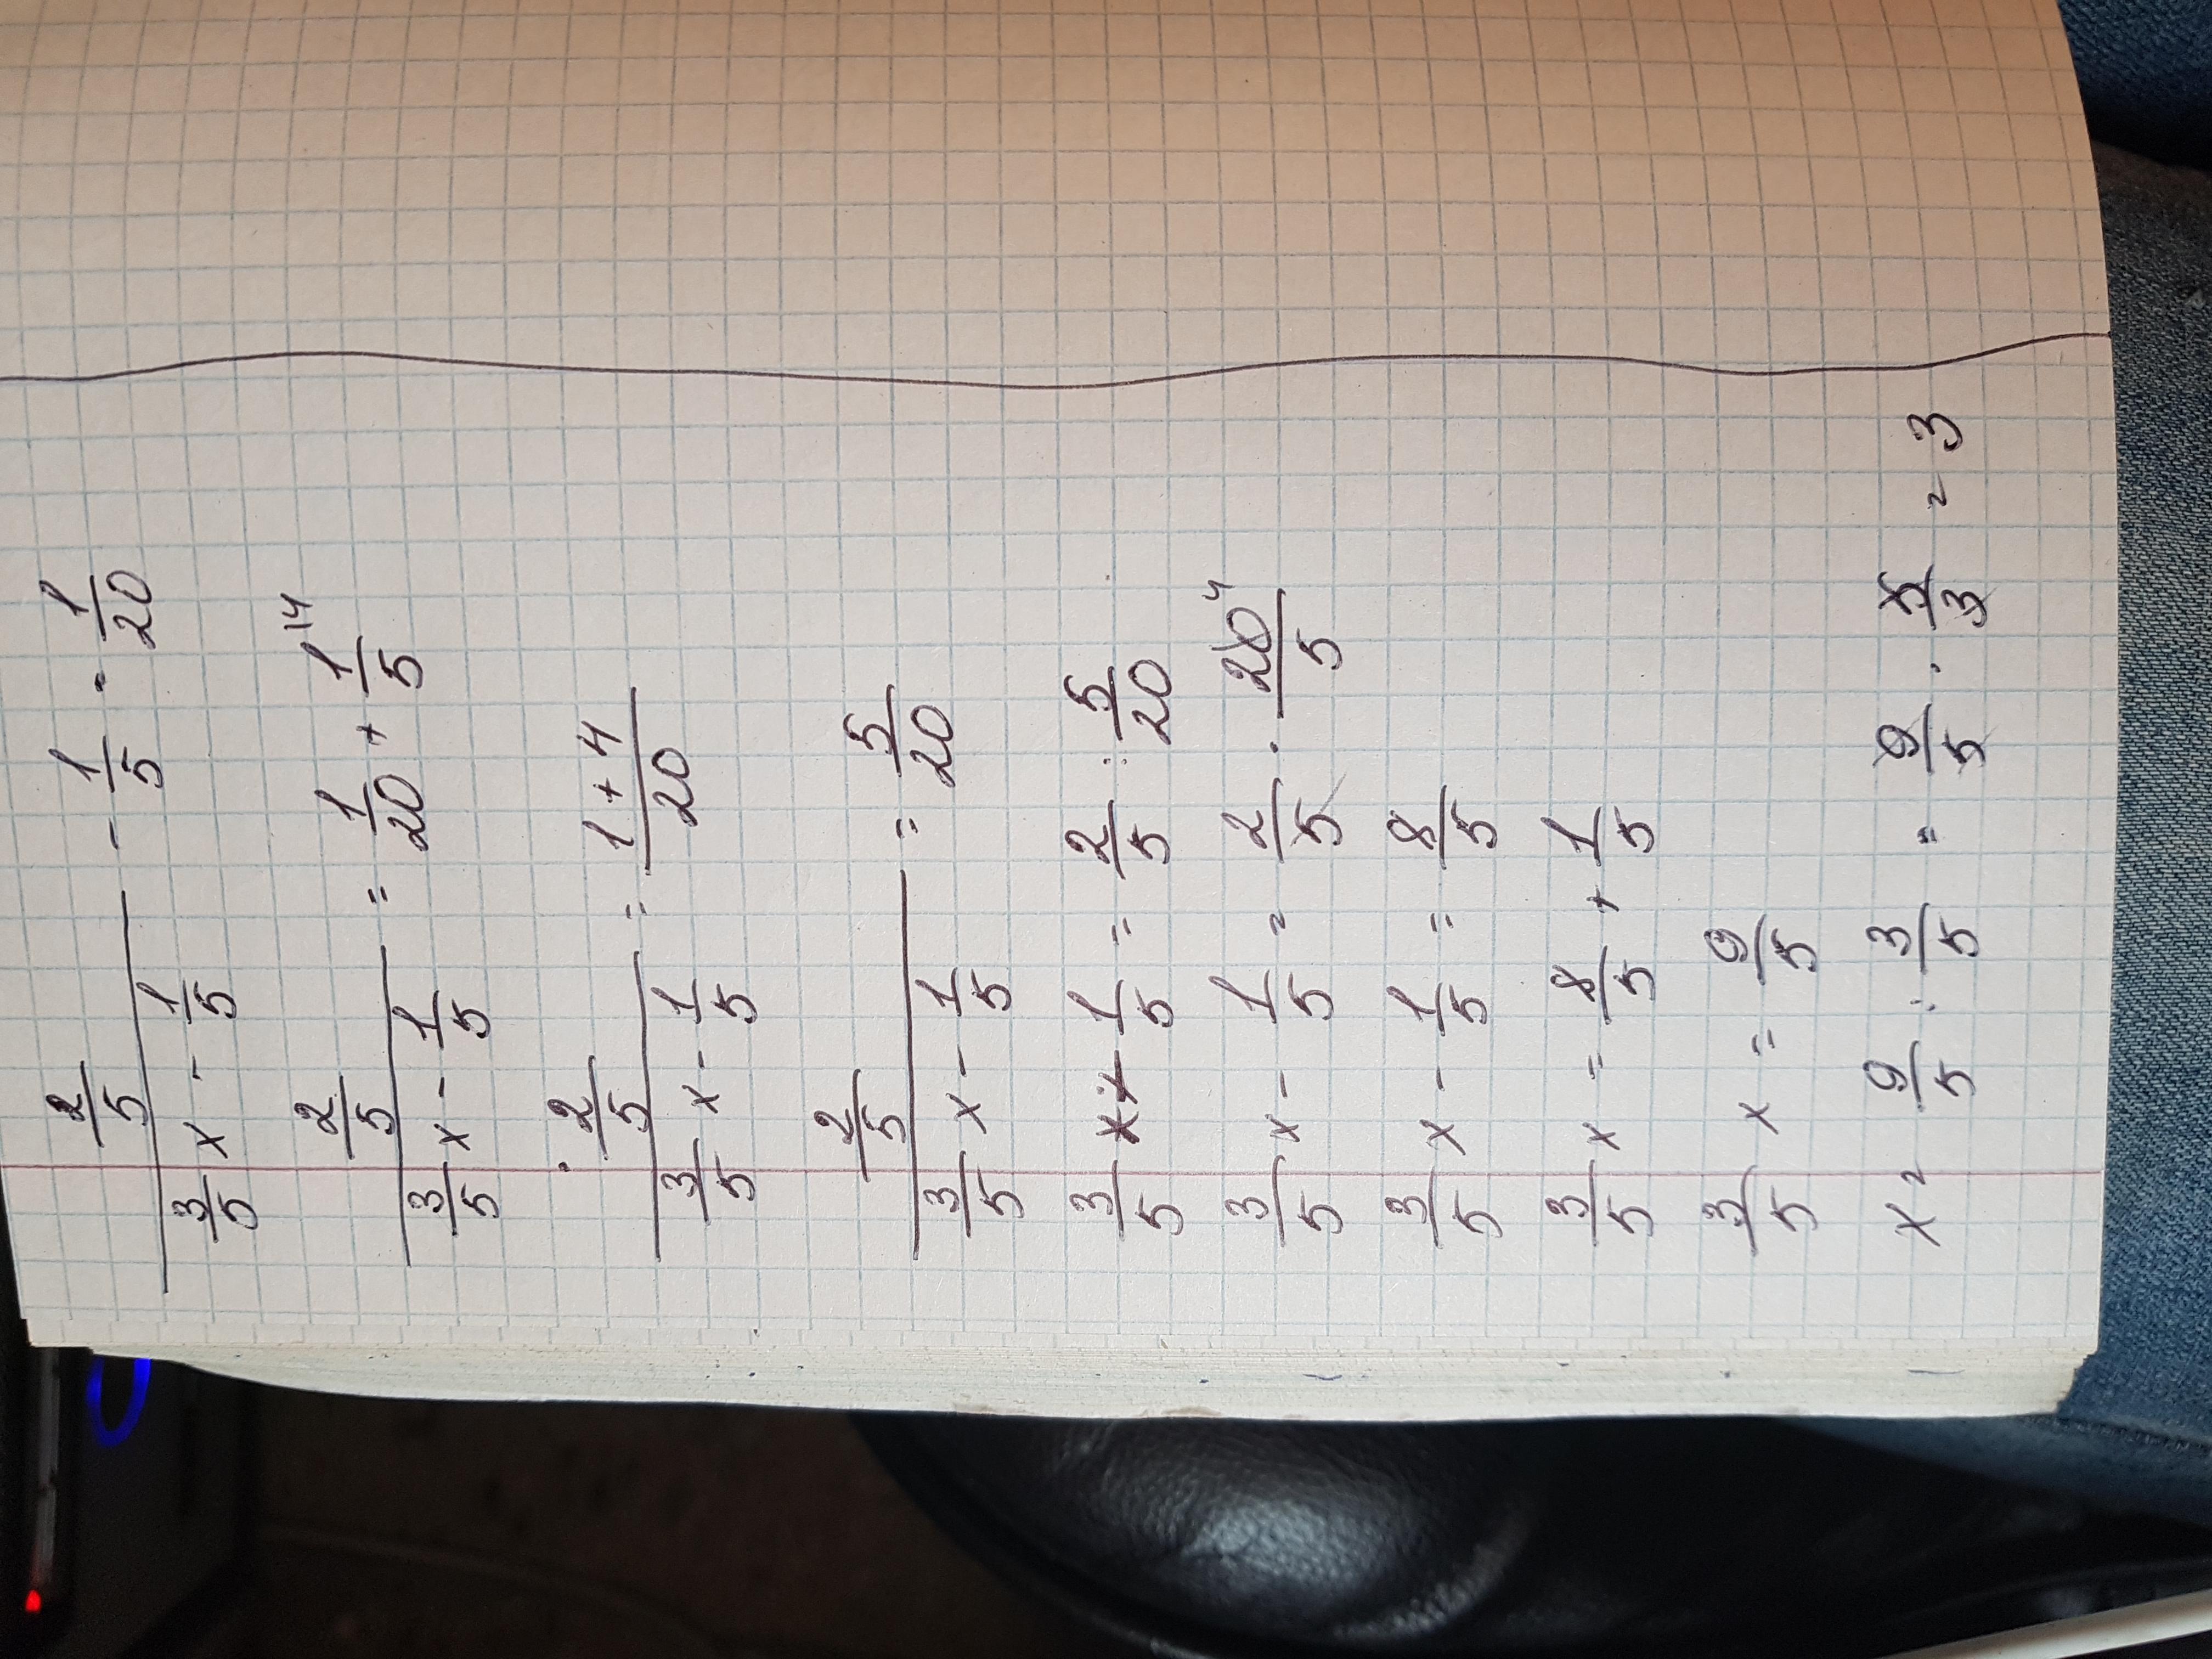 (2/5)/(3/5 x - 1/5) - 1/5 = 1/20
(2/5)/(3/5 x - 1/5) = 1/20 + 1/5 |4
(2/5)/(3/5 x - 1/5) = (1+4)/20
(2/5)/(3/5 x - 1/5) = 5/20
3/5 x - 1/5 = 2/5 : 5/20
3/5 x - 1/5 = 2/5 · 20/5 4
3/5 x - 1/5 = 8/5
3/5 x = 8/5 + 1/5
3/5 x = 9/5
x = 9/5 : 3/5 = 9/5 · 5/3 = 3